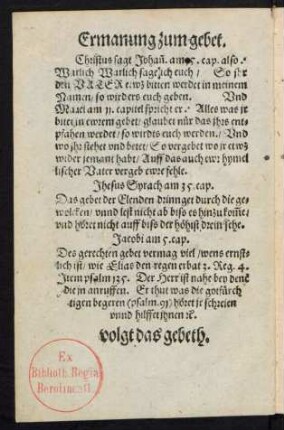 Ermanung zum gebet.
Christus sagt Johañ. am 5. cap. also.
Warlich Warlich sage ich euch/ So jhr
den VATER etwz bitten werdet in meinem
Namen/ so wirders euch geben. Und
Marci am 11. capitel spricht er. Alles was jr
bittet in ewrem gebet/ glaubet nur das jhrs ent-
pfahen werdet/ so wirdts euch werden. Und
wo jhr stehet und betet/ So vergebet wo jr etwz
wider jemant habt/ Auff das auch ewr hymel
lischer Vater vergeb ewre fehle.
Jhesus Syrach am 35. cap.
Das gebet der Elenden drinnget durch die ge-
wolcken/ unnd lest nicht ab biss es hinzu komme/
und höret nicht auff biss der höhist drein sehe.
Jacobi am 5. cap.
Des gerechten gebet vermag viel/ wens ernst-
lich ist/ wie Elias den regen erbat 3. Reg. 4.
Item psalm 135. Der Herr ist nahe bey denē
die jn anruffen. Er thut was die gotfürch
tigen begeren (psalm. 91) höret jr schreien
unnd hilfft jhnen ꝛc.
volgt das gebeth.
Ex
Biblioth. Regia
Berolinensi.